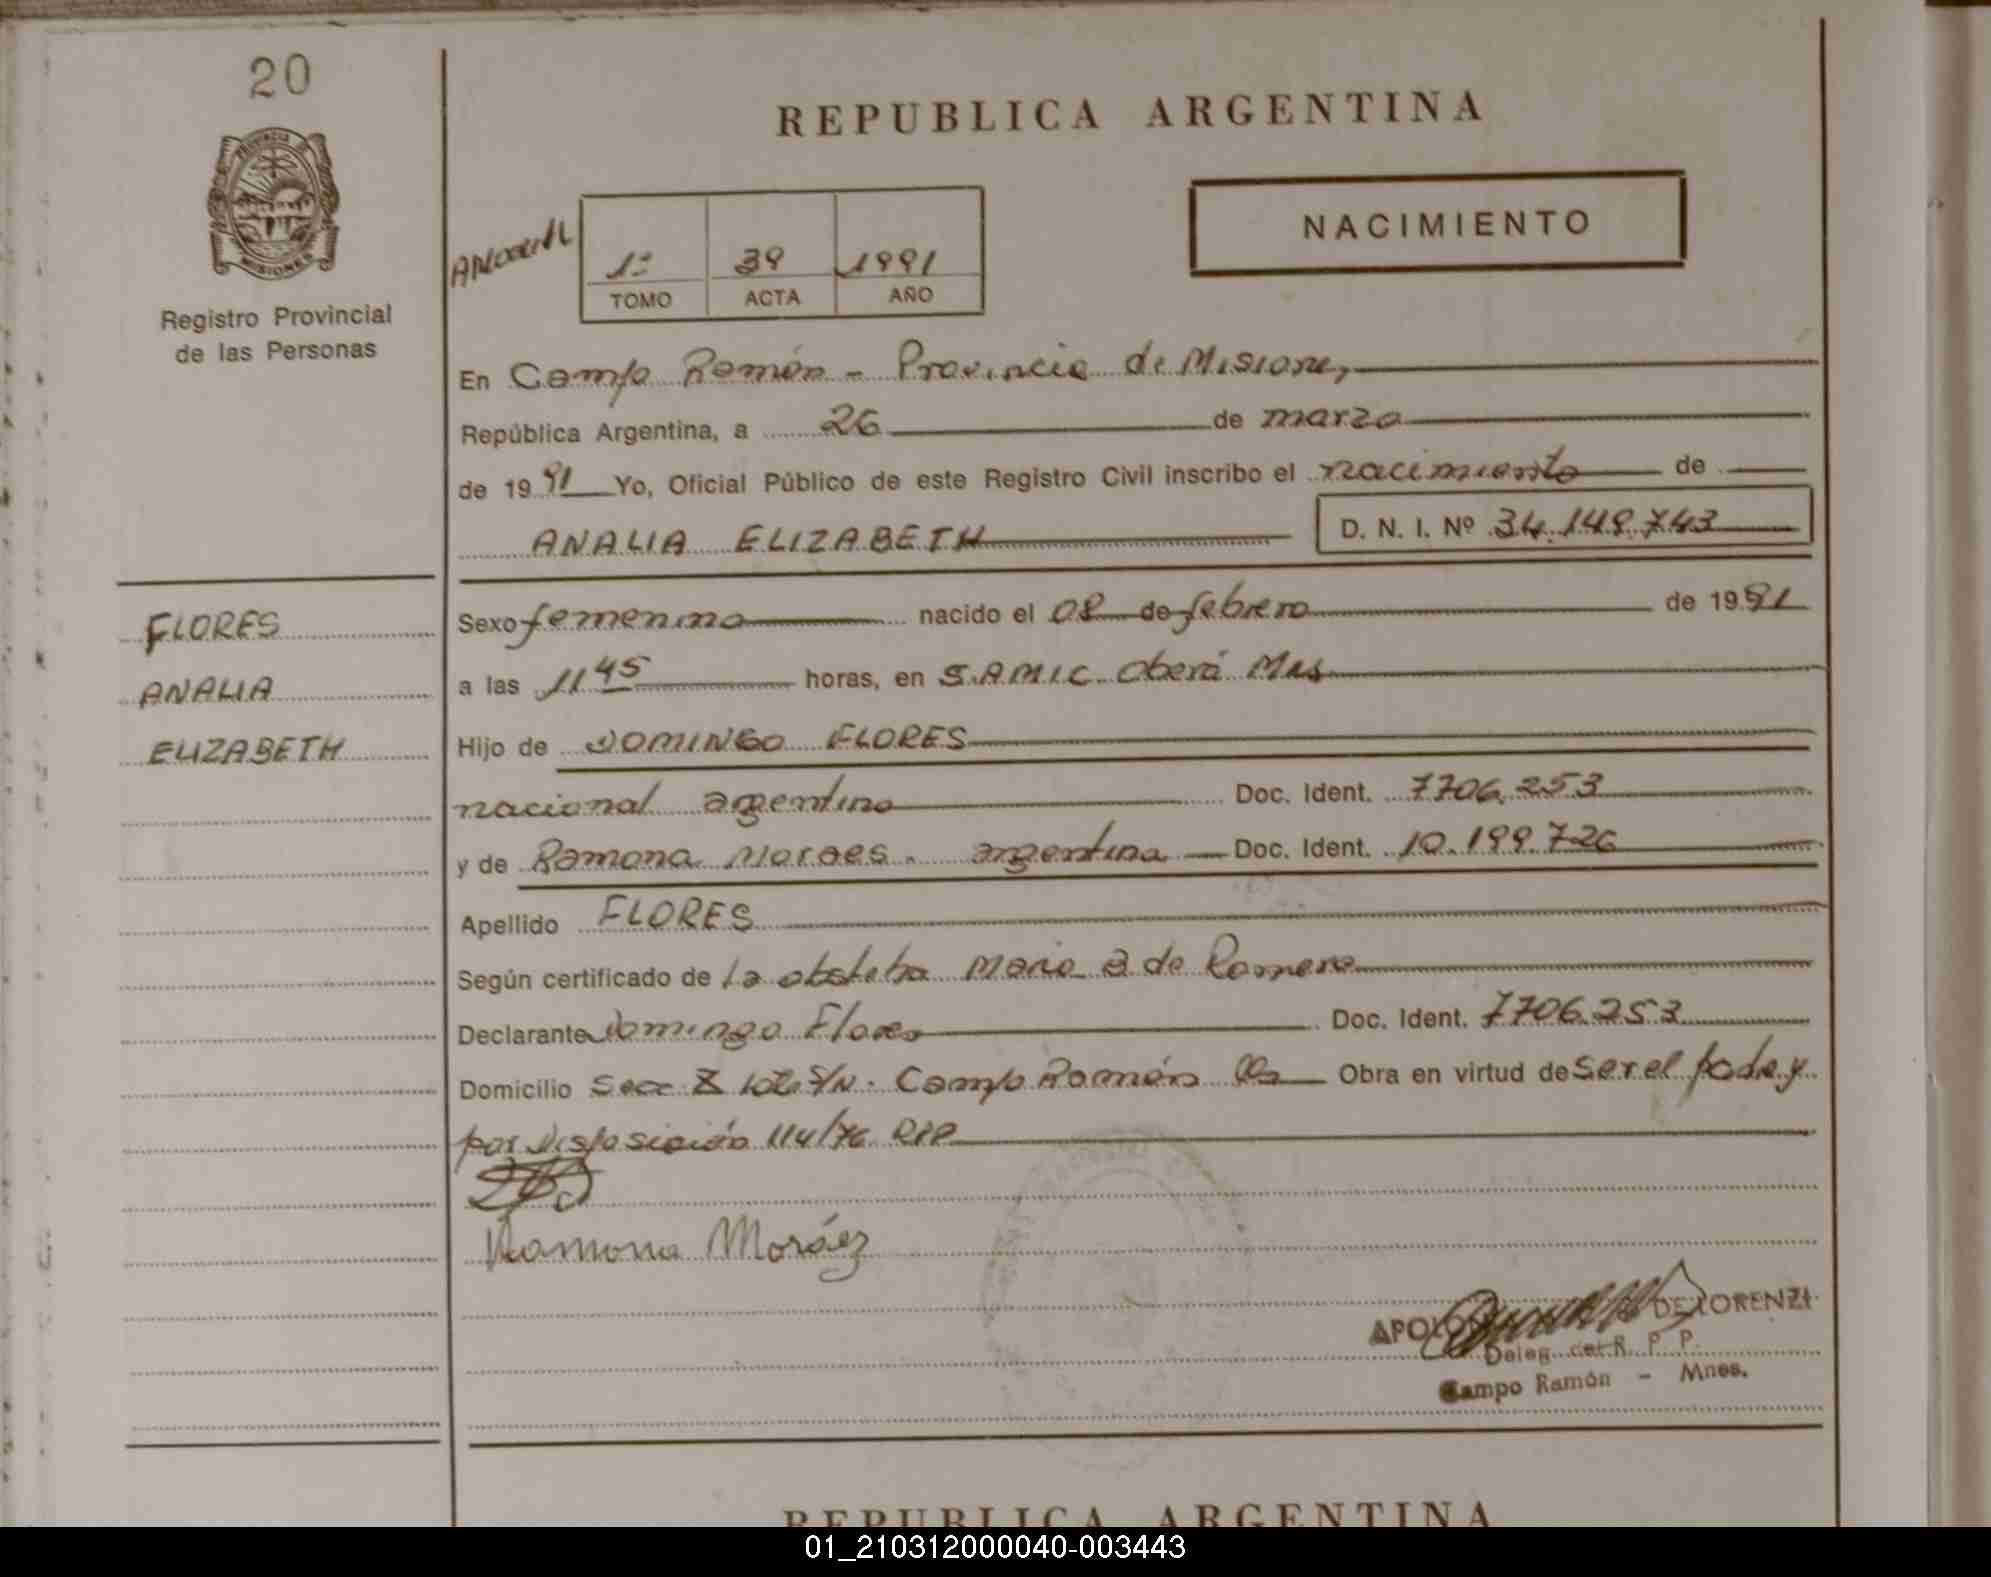 20
PROVINCIA DE
MISIONES
Registro Provincial
de las Personas
REPUBLICA ARGENTINA
NACIMIENTO
1º 39 1991
TOMO ACTA AÑO
En Campo Ramón - Provincia de Misiones,
República Argentina, a 26 de marzo
de 1991 Yo, Oficial Público de este Registro Civil inscribo el nacimiento de
ANALIA ELIZABETH D. N. I. Nº 34.148.743
FLORES
ANALIA
ELIZABETH
Sexo femenino nacido el 08 de febrero de 1991
a las 11 45 horas, en S.A.M.I.C. Oberá Mns
Hijo de DOMINGO FLORES
nacional argentino Doc. Ident. 7706.253
y de Ramona Moraes. argentina Doc. Ident. 10.199.726
Apellido FLORES
Según certificado de la obstetra Maria a de Romero
Declarante Domingo Flores Doc. Ident. 7706.253
Domicilio Secc Lote S/N. Campo Ramón Obra en virtud de ser el padre y
por Disposición 114/76 RPP
Ramona Moráez
DE LORENZI
Deleg. del R. P. P.
Campo Ramón - Mnes.
REPUBLICA ARGENTINA
01_210312000040-003443